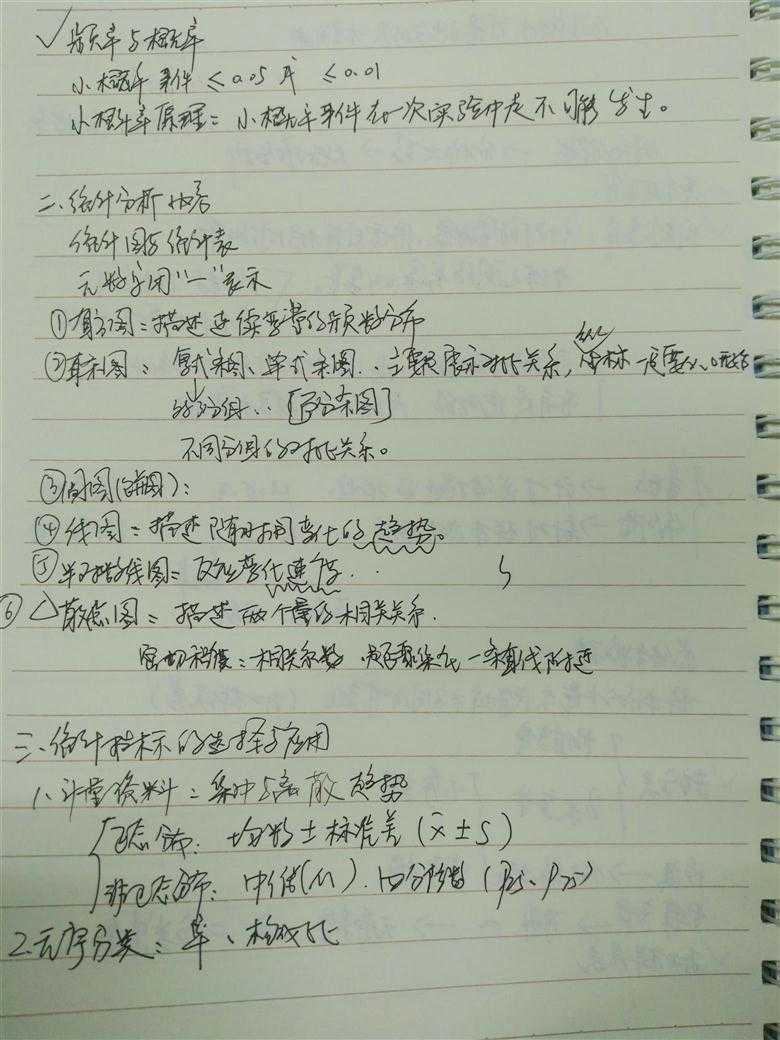 ✓频率与概率
小概率事件 ≤0.05 或 ≤0.01
小概率原理：小概率事件在一次实验中是不可能发生。
二、统计分析内容
统计图与统计表
无数字用"—"表示
①直方图：描述连续变量的频数分布
②直条图：复式条图、单式条图.. 主要是展示对比关系，纵坐标一定要从0开始
分组.. [百分条图]
不同分组的对比关系。
③圆图(饼图)：
④线图：描述随时间变化的趋势。
⑤半对数线图：反应变化速度.
⑥△散点图：描述两个量的相关关系.
密切程度：相关系数 是否聚集在一条直线附近
三、统计指标的选择与应用
1、计量资料：集中与离散趋势
正态分布：均数±标准差(x̄±S)
非正态分布：中位(M)、四分位数(P25、P75)
2.无序分类：率、构成比